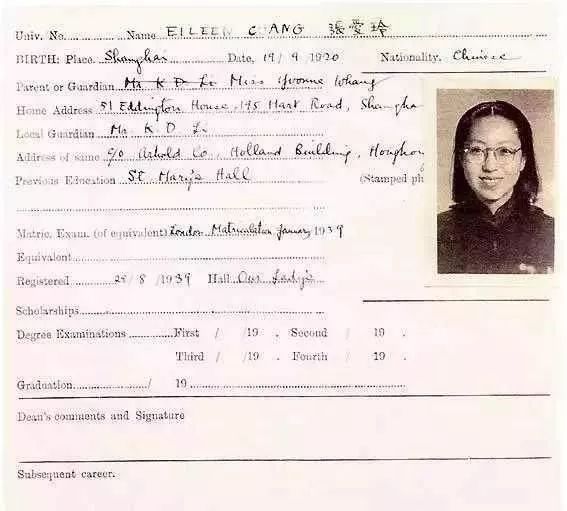 Univ. No. Name EILEEN CHANG 張愛玲
BIRTH: Place. Shanghai Date, 19/ 9 1920 Nationality. Chinese
Parent or Guardian Mr K D Li Miss Yvonne Whang
Home Address 51 Eddington House, 195 Hart Road, Shangha
Local Guardian Mr. K D Li
Address of same c/o Arnhold Co., Holland Building, Hongkon
Previous Education St Mary's Hall (Stamped ph
Matric. Exam. (of equivalent) London Matriculation January 1939
Equivalent
Registered 29/ 8 /1939 Hall Our Lady's
Scholarships
Degree Examinations First / /19 . Second / 19 .
Third / /19 . Fourth / 19 .
Graduation / 19
Dean's comments and Signature
Subsequent career.